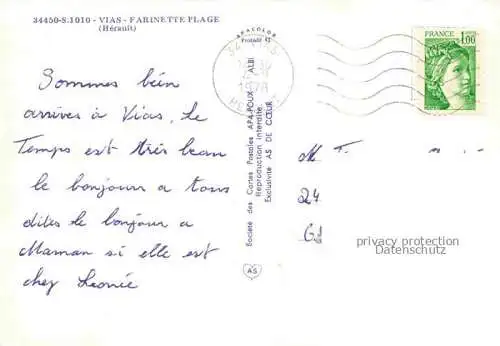 34450-S.1010 - VIAS - FARINETTE PLAGE
(Hérault)
Sommes bein
arrivés à Vias, le
Temps est très beau
le bonjour a tous
dites le bonjour a
Maman si elle est
chez Leonie
APACOLOR
Société des Cartes Postales APA-POUX - ALBI
Reproduction interdite
Exclusivité AS DE CŒUR
AS
FRANCE
1,00
M. T.
24
privacy protection
Datenschutz